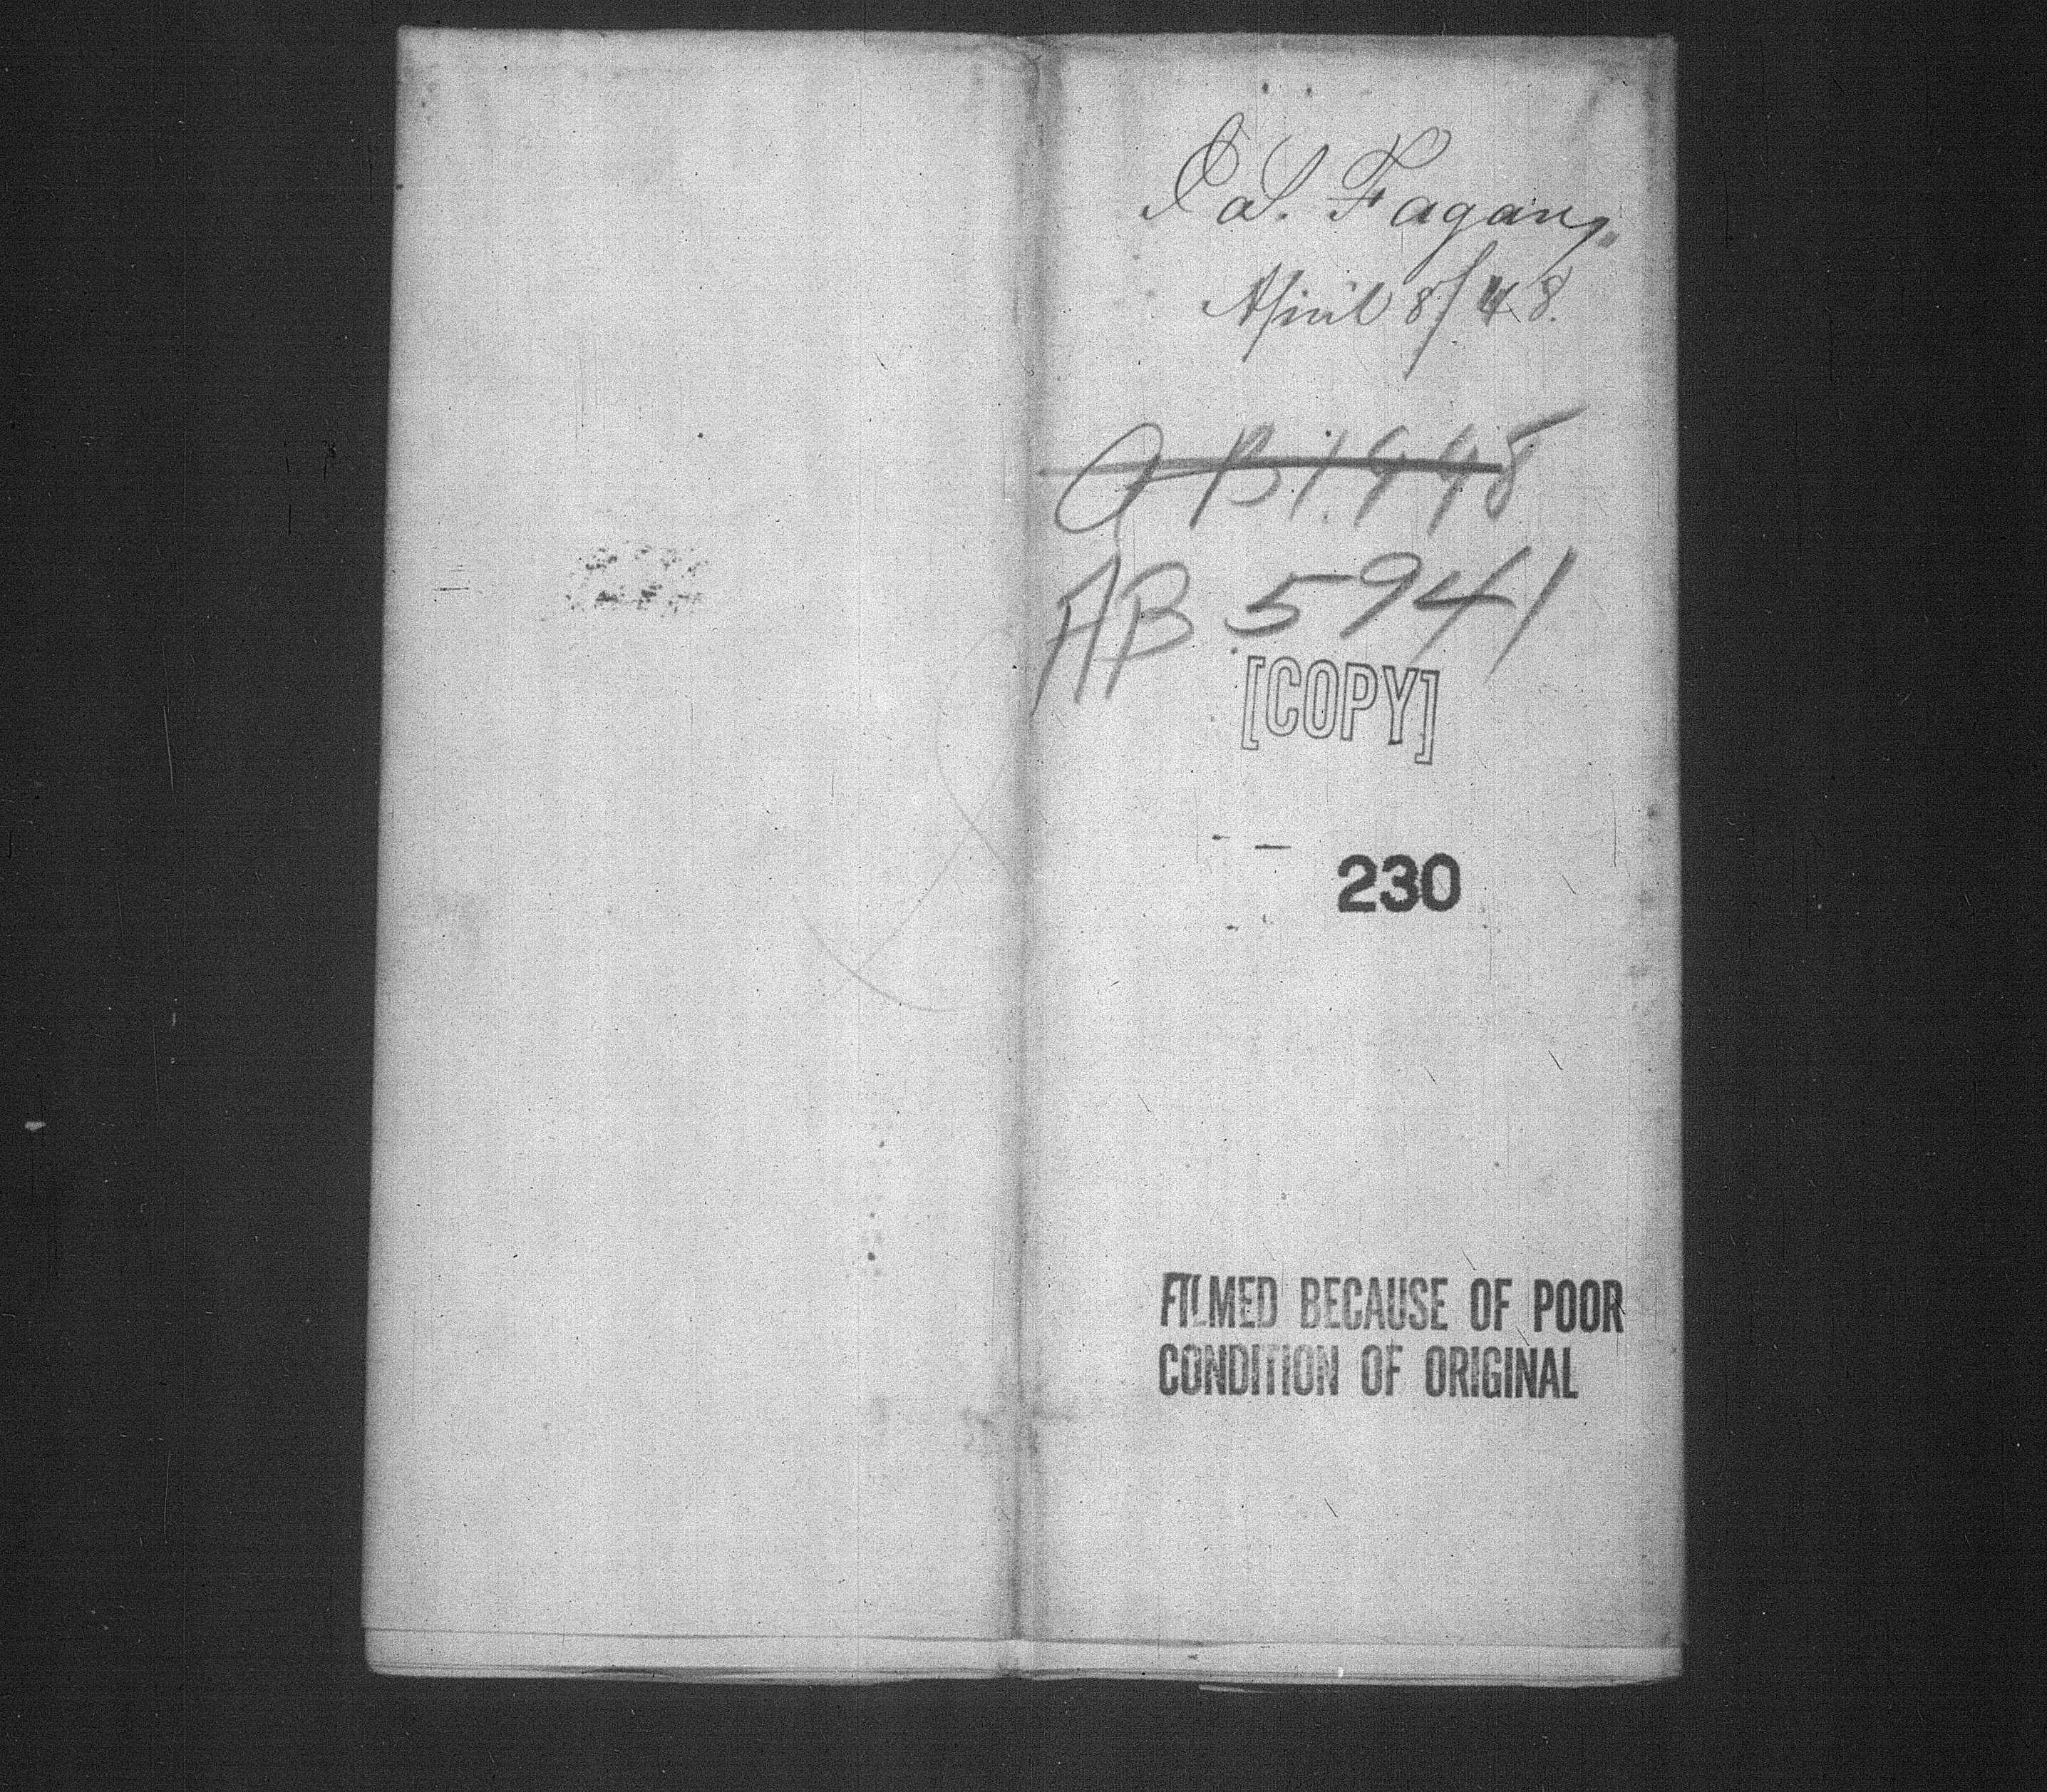 Fagan,
April 8/48.
AB 5941
[COPY]
230
FILMED BECAUSE OF POOR
CONDITION OF ORIGINAL